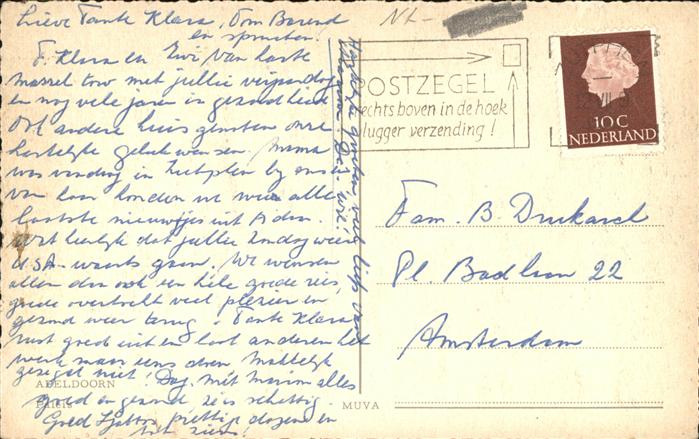 Lieve Tante Klara, Oom Barend
en spruiten.
T. Klara en Zwi van harte
massel tow met jullie verjaardag
en nog vele jaren in gezondheid.
Ook andere huisgenoten onze
hartelijke gelukwensen. Mama
was vandaag in Zutphen by ons en
van haar hoorden we weer alle
laatste nieuwtjes uit A'dam.
heerlijk dat jullie Zondag weer
USA-waarts gaan. We wensen
allen dan ook een hele goede reis,
goede overtocht veel plezier en
gezond weer terug. Tante Klara
rust goed uit en laat anderen het
werk maar eens doen. Makkelijk
gezegd niet! Dag. Met Mirjam alles
goed en gezond ze is schattig.
Goed prettige dagen en
tot ziens!
Hartelijke groeten, veel liefs van
NL-
POSTZEGEL
rechts boven in de hoek
vlugger verzending!
10 C
NEDERLAND
Fam. B. Drukarch
Pl. Badlaan 22
Amsterdam
APELDOORN
MUVA